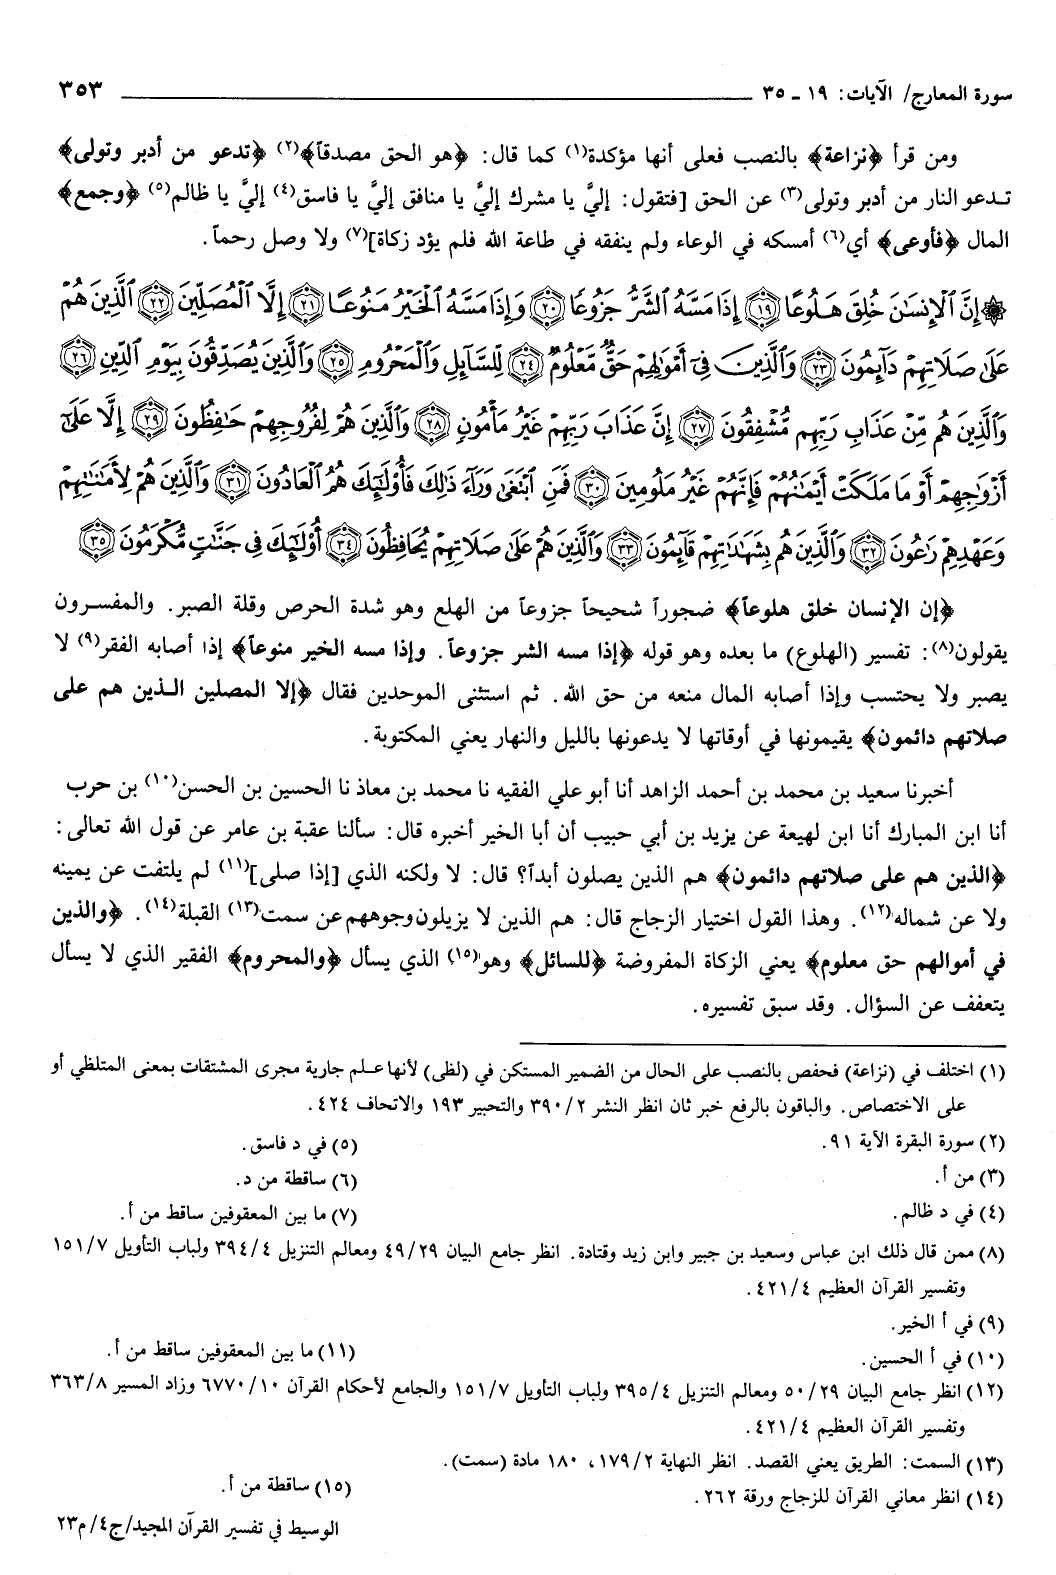 سورة المعارج/ الآيات: ١٩ - ٣٥ ٣٥٣
ومن قرأ ﴿نزاعة﴾ بالنصب فعلى أنها مؤكدة(١) كما قال: ﴿هو الحق مصدقاً﴾(٢) ﴿تدعو من أدبر وتولى﴾
تدعو النار من أدبر وتولى(٣) عن الحق [فتقول: إليَّ يا مشرك إليَّ يا منافق إليَّ يا فاسق(٤) إليَّ يا ظالم(٥) ﴿وجمع﴾
المال ﴿فأوعى﴾ أي(٦) أمسكه في الوعاء ولم ينفقه في طاعة الله فلم يؤد زكاة](٧) ولا وصل رحماً.
۞ إِنَّ ٱلْإِنسَٰنَ خُلِقَ هَلُوعًا ﴿١٩﴾ إِذَا مَسَّهُ ٱلشَّرُّ جَزُوعًا ﴿٢٠﴾ وَإِذَا مَسَّهُ ٱلْخَيْرُ مَنُوعًا ﴿٢١﴾ إِلَّا ٱلْمُصَلِّينَ ﴿٢٢﴾ ٱلَّذِينَ هُمْ
عَلَىٰ صَلَاتِهِمْ دَآئِمُونَ ﴿٢٣﴾ وَٱلَّذِينَ فِىٓ أَمْوَٰلِهِمْ حَقٌّ مَّعْلُومٌ ﴿٢٤﴾ لِّلسَّآئِلِ وَٱلْمَحْرُومِ ﴿٢٥﴾ وَٱلَّذِينَ يُصَدِّقُونَ بِيَوْمِ ٱلدِّينِ ﴿٢٦﴾
وَٱلَّذِينَ هُم مِّنْ عَذَابِ رَبِّهِم مُّشْفِقُونَ ﴿٢٧﴾ إِنَّ عَذَابَ رَبِّهِمْ غَيْرُ مَأْمُونٍ ﴿٢٨﴾ وَٱلَّذِينَ هُمْ لِفُرُوجِهِمْ حَٰفِظُونَ ﴿٢٩﴾ إِلَّا عَلَىٰٓ
أَزْوَٰجِهِمْ أَوْ مَا مَلَكَتْ أَيْمَٰنُهُمْ فَإِنَّهُمْ غَيْرُ مَلُومِينَ ﴿٣٠﴾ فَمَنِ ٱبْتَغَىٰ وَرَآءَ ذَٰلِكَ فَأُو۟لَٰٓئِكَ هُمُ ٱلْعَادُونَ ﴿٣١﴾ وَٱلَّذِينَ هُمْ لِأَمَٰنَٰتِهِمْ
وَعَهْدِهِمْ رَٰعُونَ ﴿٣٢﴾ وَٱلَّذِينَ هُم بِشَهَٰدَٰتِهِمْ قَآئِمُونَ ﴿٣٣﴾ وَٱلَّذِينَ هُمْ عَلَىٰ صَلَاتِهِمْ يُحَافِظُونَ ﴿٣٤﴾ أُو۟لَٰٓئِكَ فِى جَنَّٰتٍ مُّكْرَمُونَ ﴿٣٥﴾
﴿إن الإنسان خلق هلوعاً﴾ ضجوراً شحيحاً جزوعاً من الهلع وهو شدة الحرص وقلة الصبر. والمفسرون
يقولون(٨): تفسير (الهلوع) ما بعده وهو قوله ﴿إذا مسه الشر جزوعاً. وإذا مسه الخير منوعاً﴾ إذا أصابه الفقر(٩) لا
يصبر ولا يحتسب وإذا أصابه المال منعه من حق الله. ثم استثنى الموحدين فقال ﴿إلا المصلين الذين هم على
صلاتهم دائمون﴾ يقيمونها في أوقاتها لا يدعونها بالليل والنهار يعني المكتوبة.
أخبرنا سعيد بن محمد بن أحمد الزاهد أنا أبو علي الفقيه نا محمد بن معاذ نا الحسين بن الحسن(١٠) بن حرب
أنا ابن المبارك أنا ابن لهيعة عن يزيد بن أبي حبيب أن أبا الخير أخبره قال: سألنا عقبة بن عامر عن قول الله تعالى:
﴿الذين هم على صلاتهم دائمون﴾ هم الذين يصلون أبداً؟ قال: لا ولكنه الذي [إذا صلى](١١) لم يلتفت عن يمينه
ولا عن شماله(١٢). وهذا القول اختيار الزجاج قال: هم الذين لا يزيلون وجوههم عن سمت(١٣) القبلة(١٤). ﴿والذين
في أموالهم حق معلوم﴾ يعني الزكاة المفروضة ﴿للسائل﴾ وهو(١٥) الذي يسأل ﴿والمحروم﴾ الفقير الذي لا يسأل
يتعفف عن السؤال. وقد سبق تفسيره.
(١) اختلف في (نزاعة) فحفص بالنصب على الحال من الضمير المستكن في (لظى) لأنها علم جارية مجرى المشتقات بمعنى المتلظي أو
على الاختصاص. والباقون بالرفع خبر ثان انظر النشر ٣٩٠/٢ والتحبير ١٩٣ والاتحاف ٤٢٤.
(٢) سورة البقرة الآية ٩١.
(٣) من أ.
(٤) في د ظالم.
(٥) في د فاسق.
(٦) ساقطة من د.
(٧) ما بين المعقوفين ساقط من أ.
(٨) ممن قال ذلك ابن عباس وسعيد بن جبير وابن زيد وقتادة. انظر جامع البيان ٤٩/٢٩ ومعالم التنزيل ٣٩٤/٤ ولباب التأويل ١٥١/٧
وتفسير القرآن العظيم ٤٢١/٤.
(٩) في أ الخير.
(١٠) في أ الحسين.
(١١) ما بين المعقوفين ساقط من أ.
(١٢) انظر جامع البيان ٥٠/٢٩ ومعالم التنزيل ٣٩٥/٤ ولباب التأويل ١٥١/٧ والجامع لأحكام القرآن ٦٧٧٠/١٠ وزاد المسير ٣٦٣/٨
وتفسير القرآن العظيم ٤٢١/٤.
(١٣) السمت: الطريق يعني القصد. انظر النهاية ١٧٩/٢، ١٨٠ مادة (سمت).
(١٤) انظر معاني القرآن للزجاج ورقة ٢٦٢.
(١٥) ساقطة من أ.
الوسيط في تفسير القرآن المجيد/ج٤/م٢٣